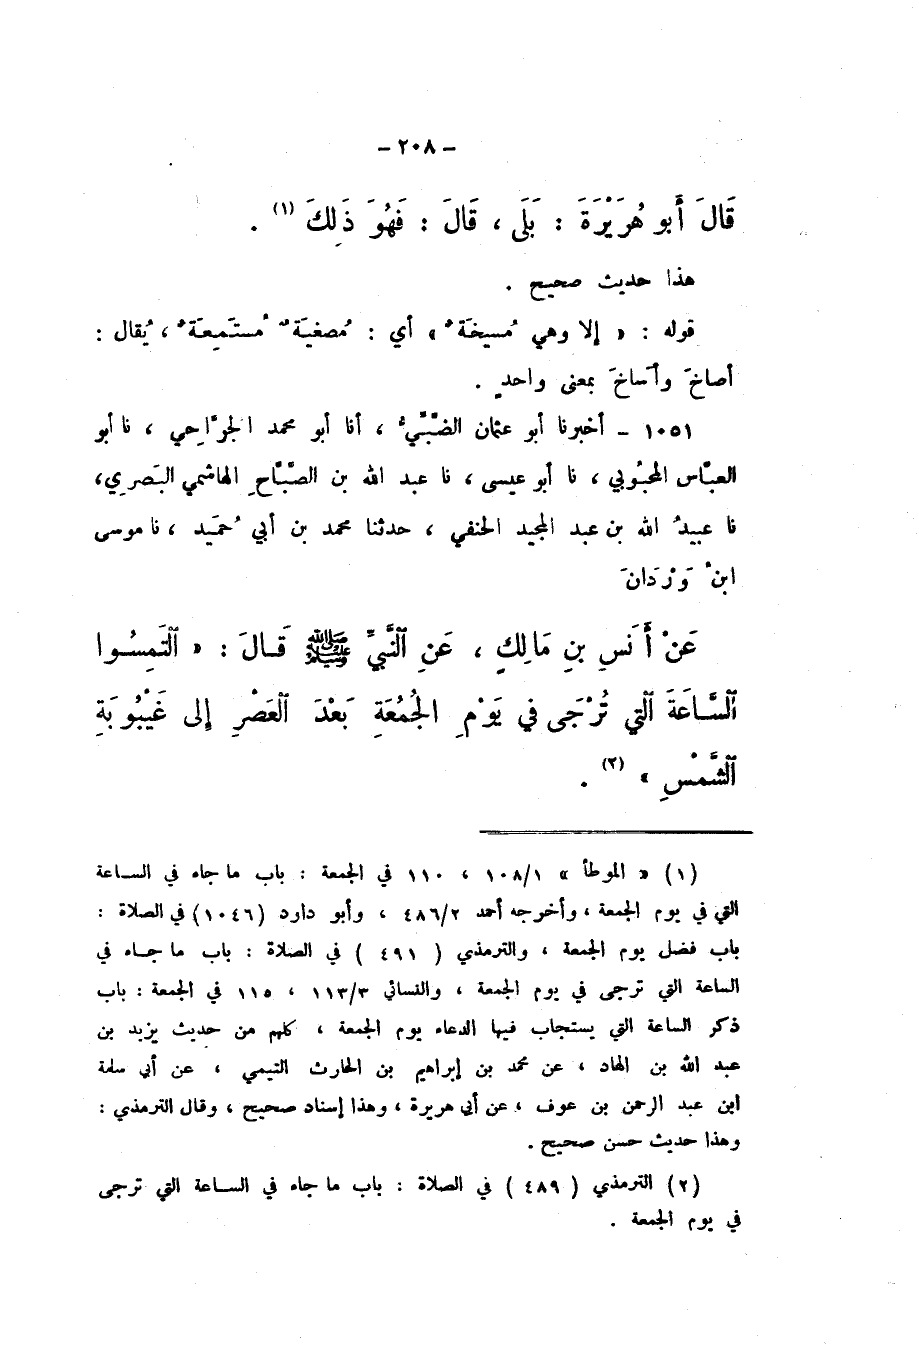 – ٢٠٨ –
قَالَ أَبو هُرَيْرَةَ : بَلَى ، قَالَ : فَهُوَ ذَلِكَ (١) .
هذا حديث صحيح .
قوله : « إلا وهي مُسيخَةٌ » أي : مُصغيَةٌ مُستَمِعَةٌ ، يُقال :
أصاخَ وأَساخَ بمعنى واحدٍ .
١٠٥١ – أخبرنا أبو عثمان الضّبّيُّ ، أنا أبو محمد الجرّاحي ، نا أبو
العبّاس المحبُوبي ، نا أبو عيسى ، نا عبد الله بن الصبّاحِ الهاشمي البَصرِي،
نا عبيدُ الله بن عبد المجيد الحنفي ، حدثنا محمد بن أبي حُمَيد ، نا موسى
ابنُ وَرْدَانَ
عَنْ أَنَسِ بنِ مَالِكٍ ، عَنِ ٱلنَّبيِّ ﷺ قَالَ : « ٱلتَمِسُوا
ٱلسَّاعَةَ ٱلَّتِي تُرْجَى فِي يَوْمِ الجُمُعَةِ بَعْدَ ٱلعَصْرِ إِلى غَيْبُوبَةِ
ٱلشَّمْسِ » (٢) .
(١) « الموطأ » ١٠٨/١ ، ١١٠ في الجمعة : باب ما جاء في الساعة
التي في يوم الجمعة ، وأخرجه أحمد ٤٨٦/٢ ، وأبو داود (١٠٤٦) في الصلاة :
باب فضل يوم الجمعة ، والترمذي ( ٤٩١ ) في الصلاة : باب ما جاء في
الساعة التي ترجى في يوم الجمعة ، والنسائي ١١٣/٣ ، ١١٥ في الجمعة : باب
ذكر الساعة التي يستجاب فيها الدعاء يوم الجمعة ، كلهم من حديث يزيد بن
عبد الله بن الهاد ، عن محمد بن إبراهيم بن الحارث التيمي ، عن أبي سلمة
ابن عبد الرحمن بن عوف ، عن أبي هريرة ، وهذا إسناد صحيح ، وقال الترمذي :
وهذا حديث حسن صحيح .
(٢) الترمذي ( ٤٨٩ ) في الصلاة : باب ما جاء في الساعة التي ترجى
في يوم الجمعة .